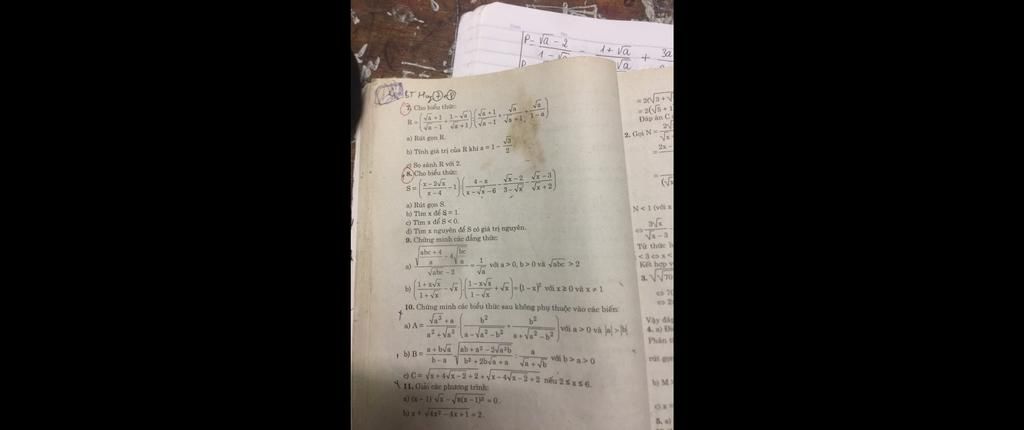 P = √a - 2 / 1 - √a - 1 + √a / √a + 3a
BT
7. Cho biểu thức:
R = (√a+1 / √a−1 + 1−√a / √a+1) : (√a+1 / √a−1 + √a / √a+1 + √a / 1−a)
a) Rút gọn R.
b) Tính giá trị của R khi a = 1 − √3 / 2
c) So sánh R với 2.
8. Cho biểu thức:
S = (x−2√x / x−4 − 1) : (4−x / x−√x−6 − √x−2 / 3−√x − √x−3 / √x+2)
a) Rút gọn S.
b) Tìm x để S = 1.
c) Tìm x để S < 0.
d) Tìm x nguyên để S có giá trị nguyên.
9. Chứng minh các đẳng thức:
a) √(abc+4 / a − 4√(bc / a)) / √abc − 2 = 1 / √a với a > 0, b > 0 và √abc > 2
b) (1+x√x / 1+√x − √x) (1−x√x / 1−√x + √x) = (1−x)² với x ≥ 0 và x ≠ 1
10. Chứng minh các biểu thức sau không phụ thuộc vào các biến:
a) A = √a³ + a / a² + √a³ (b² / a−√a²−b² + b² / a+√a²−b²) với a > 0 và |a| > |b|
b) B = a+b√a / b−a · √(ab+a²−2√a³b / b²+2b√a+a) : a / √a+√b với b > a > 0
c) C = √x+4√x−2+2 + √x−4√x−2+2 nếu 2 ≤ x ≤ 6.
11. Giải các phương trình:
a) (x−1)√x − √x(x−1)² = 0.
b) x + √4x² − 4x + 1 = 2.
= 2(√3 + √
= 2(√3 + 1
Đáp án C
2. Gọi N = 2√ / √x
= 2x −
= / (√x
N < 1 (với x
⇔ 3√x / √x − 3
Từ thức
< 3 ⇔ x <
Kết hợp v
3. √√70
⇔ 70
⇔ 2
Vậy đẳ
4. a) Đi
Phân t
rút gọn
b) M
c) x =
5. a)